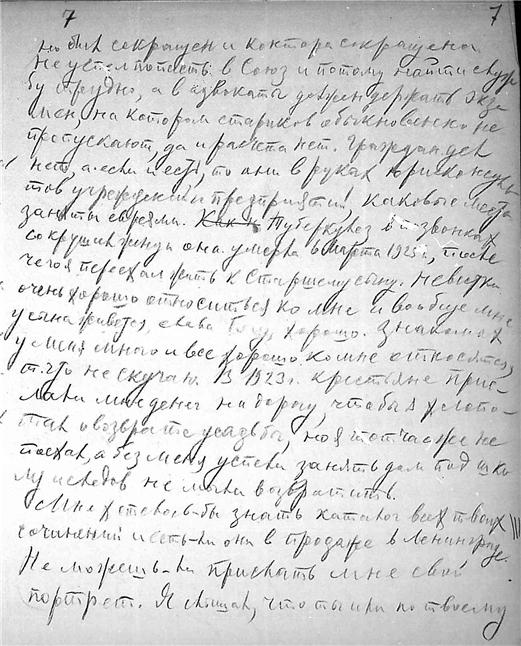 7 7
но был сокращен и контора сокращена
не успел попасть в Союз и потому найти служ
бу трудно, а в адвокаты держать экза
мен, на котором стариков обыкновенно не
пропускают, да и расчета нет. Гражданских дел
нет, а если и есть, то они в руках юрисконсуль
тов учреждений и предприятий каковые места
заняты евреями. Как и Туберкулез в позвонках
сокрушил она умерла 6 марта 1925 г., после
чего я переехал жить к старшему сыну. Невестка
очень хорошо относиться ко мне и вообще мне
у сына живется, слава богу, хорошо. Знакомых
у меня много и все хорошо ко мне относятся,
т. что не скучаю. В 1923 г. крестьяне прис-
лали мне денег на дорогу, чтобы я хлопо-
тал о возврате усадьбы, но я тотчас же не
поехал, а без меня успели занять дом под шко
лу и следов. не могли возвратить.
Мне хотелось-бы знать каталог всех твоих
сочинений и есть-ли они в продаже в Ленинграде.
Не можешь-ли прислать мне свой
портрет. Я слышал, что ты или по твоему